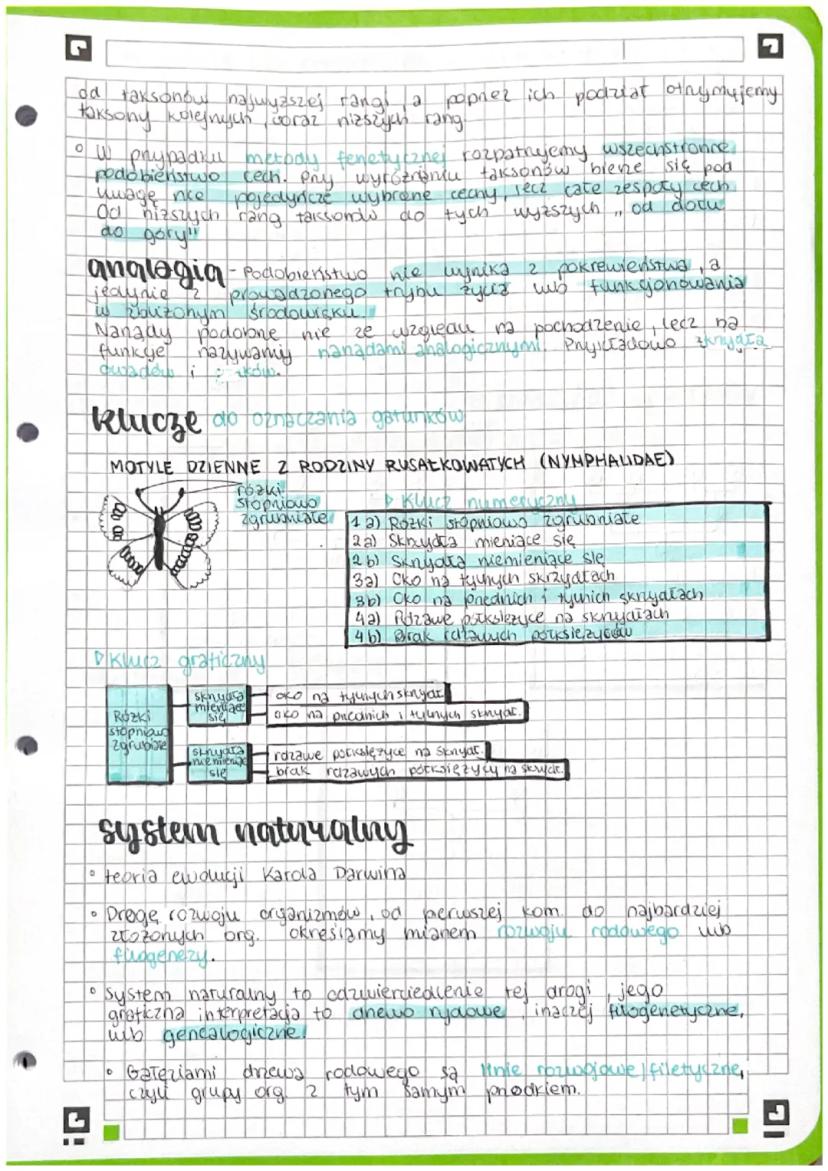 od taksonów najwyższej rangi, a poprzez ich podział otrzymujemy
taksony kolejnych, coraz niższych rang.
W przypadku metody fenetycznej rozpatrujemy wszechstronne
podobieństwo cech. Przy wyróżnianiu taksonów bierze się pod
uwagę nie pojedyńcze wybrane cechy, lecz całe zespoły cech
Od niższych rang taksonów do tych wyższych „od dołu
do góry"
analogia - Podobieństwo nie wynika z pokrewieństwa, a
jedynie z prowadzonego trybu życia lub funkcjonowania
w zbliżonym środowisku.
Narządy podobne nie ze względu na pochodzenie, lecz na
funkcje nazywamy narządami analogicznymi. Przykładowo skrzydła
owadów i
klucze do oznaczania gatunków
MOTYLE DZIENNE Z RODZINY RUSAŁKOWATYCH (NYMPHALIDAE)
różki
stopniowo
zgrubniałe
Klucz numeryczny
1a) Różki stopniowo zgrubniałe
2a) Skrzydła mieniące się
2b) Skrzydła niemieniące się
3a) Oko na tylnych skrzydłach
3b) Oko na przednich i tylnich skrzydłach
4a) Rdzawe półksiężyce na skrzydłach
4b) Brak rdzawych półksiężyców
Klucz graficzny
Różki
stopniowo
zgrubiałe
skrzydła
mieniące
się
oko na tylnych skrzydł.
oko na przednich i tylnych skrzydł.
skrzydła
niemieniące
się
rdzawe półksiężyce na skrzydł.
brak rdzawych półksiężycy na skrzydł.
system naturalny
teoria ewolucji Karola Darwina
Drogę rozwoju organizmów, od pierwszej kom. do najbardziej
złożonych org. określamy mianem rozwoju rodowego lub
filogenezy.
System naturalny to odzwierciedlenie tej drogi, jego
graficzna interpretacja to drzewo rodowe, inaczej filogenetyczne,
lub genealogiczne.
Gałęziami drzewa rodowego są linie rozwojowe/filetyczne,
czyli grupy org. z tym samym przodkiem.